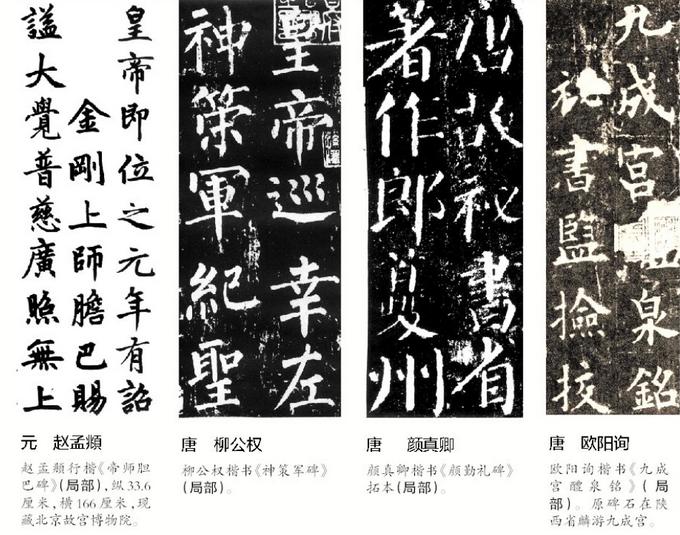 皇帝即位之元年有詔
金剛上師膽巴賜
謚大覺普慈廣照無上
皇帝巡幸左
神策軍紀聖
唐故秘書省
著作郎夏州
九成宮醴泉銘
秘書監撿挍
元 赵孟頫
赵孟頫行楷《帝师胆
巴碑》(局部),纵33.6
厘米,横166厘米,现
藏北京故宫博物院。
唐 柳公权
柳公权楷书《神策军碑》
(局部)。
唐 颜真卿
颜真卿楷书《颜勤礼碑》
拓本(局部)。
唐 欧阳询
欧阳询楷书《九成
宫醴泉铭》(局
部)。原碑石在陕
西省麟游九成宫。